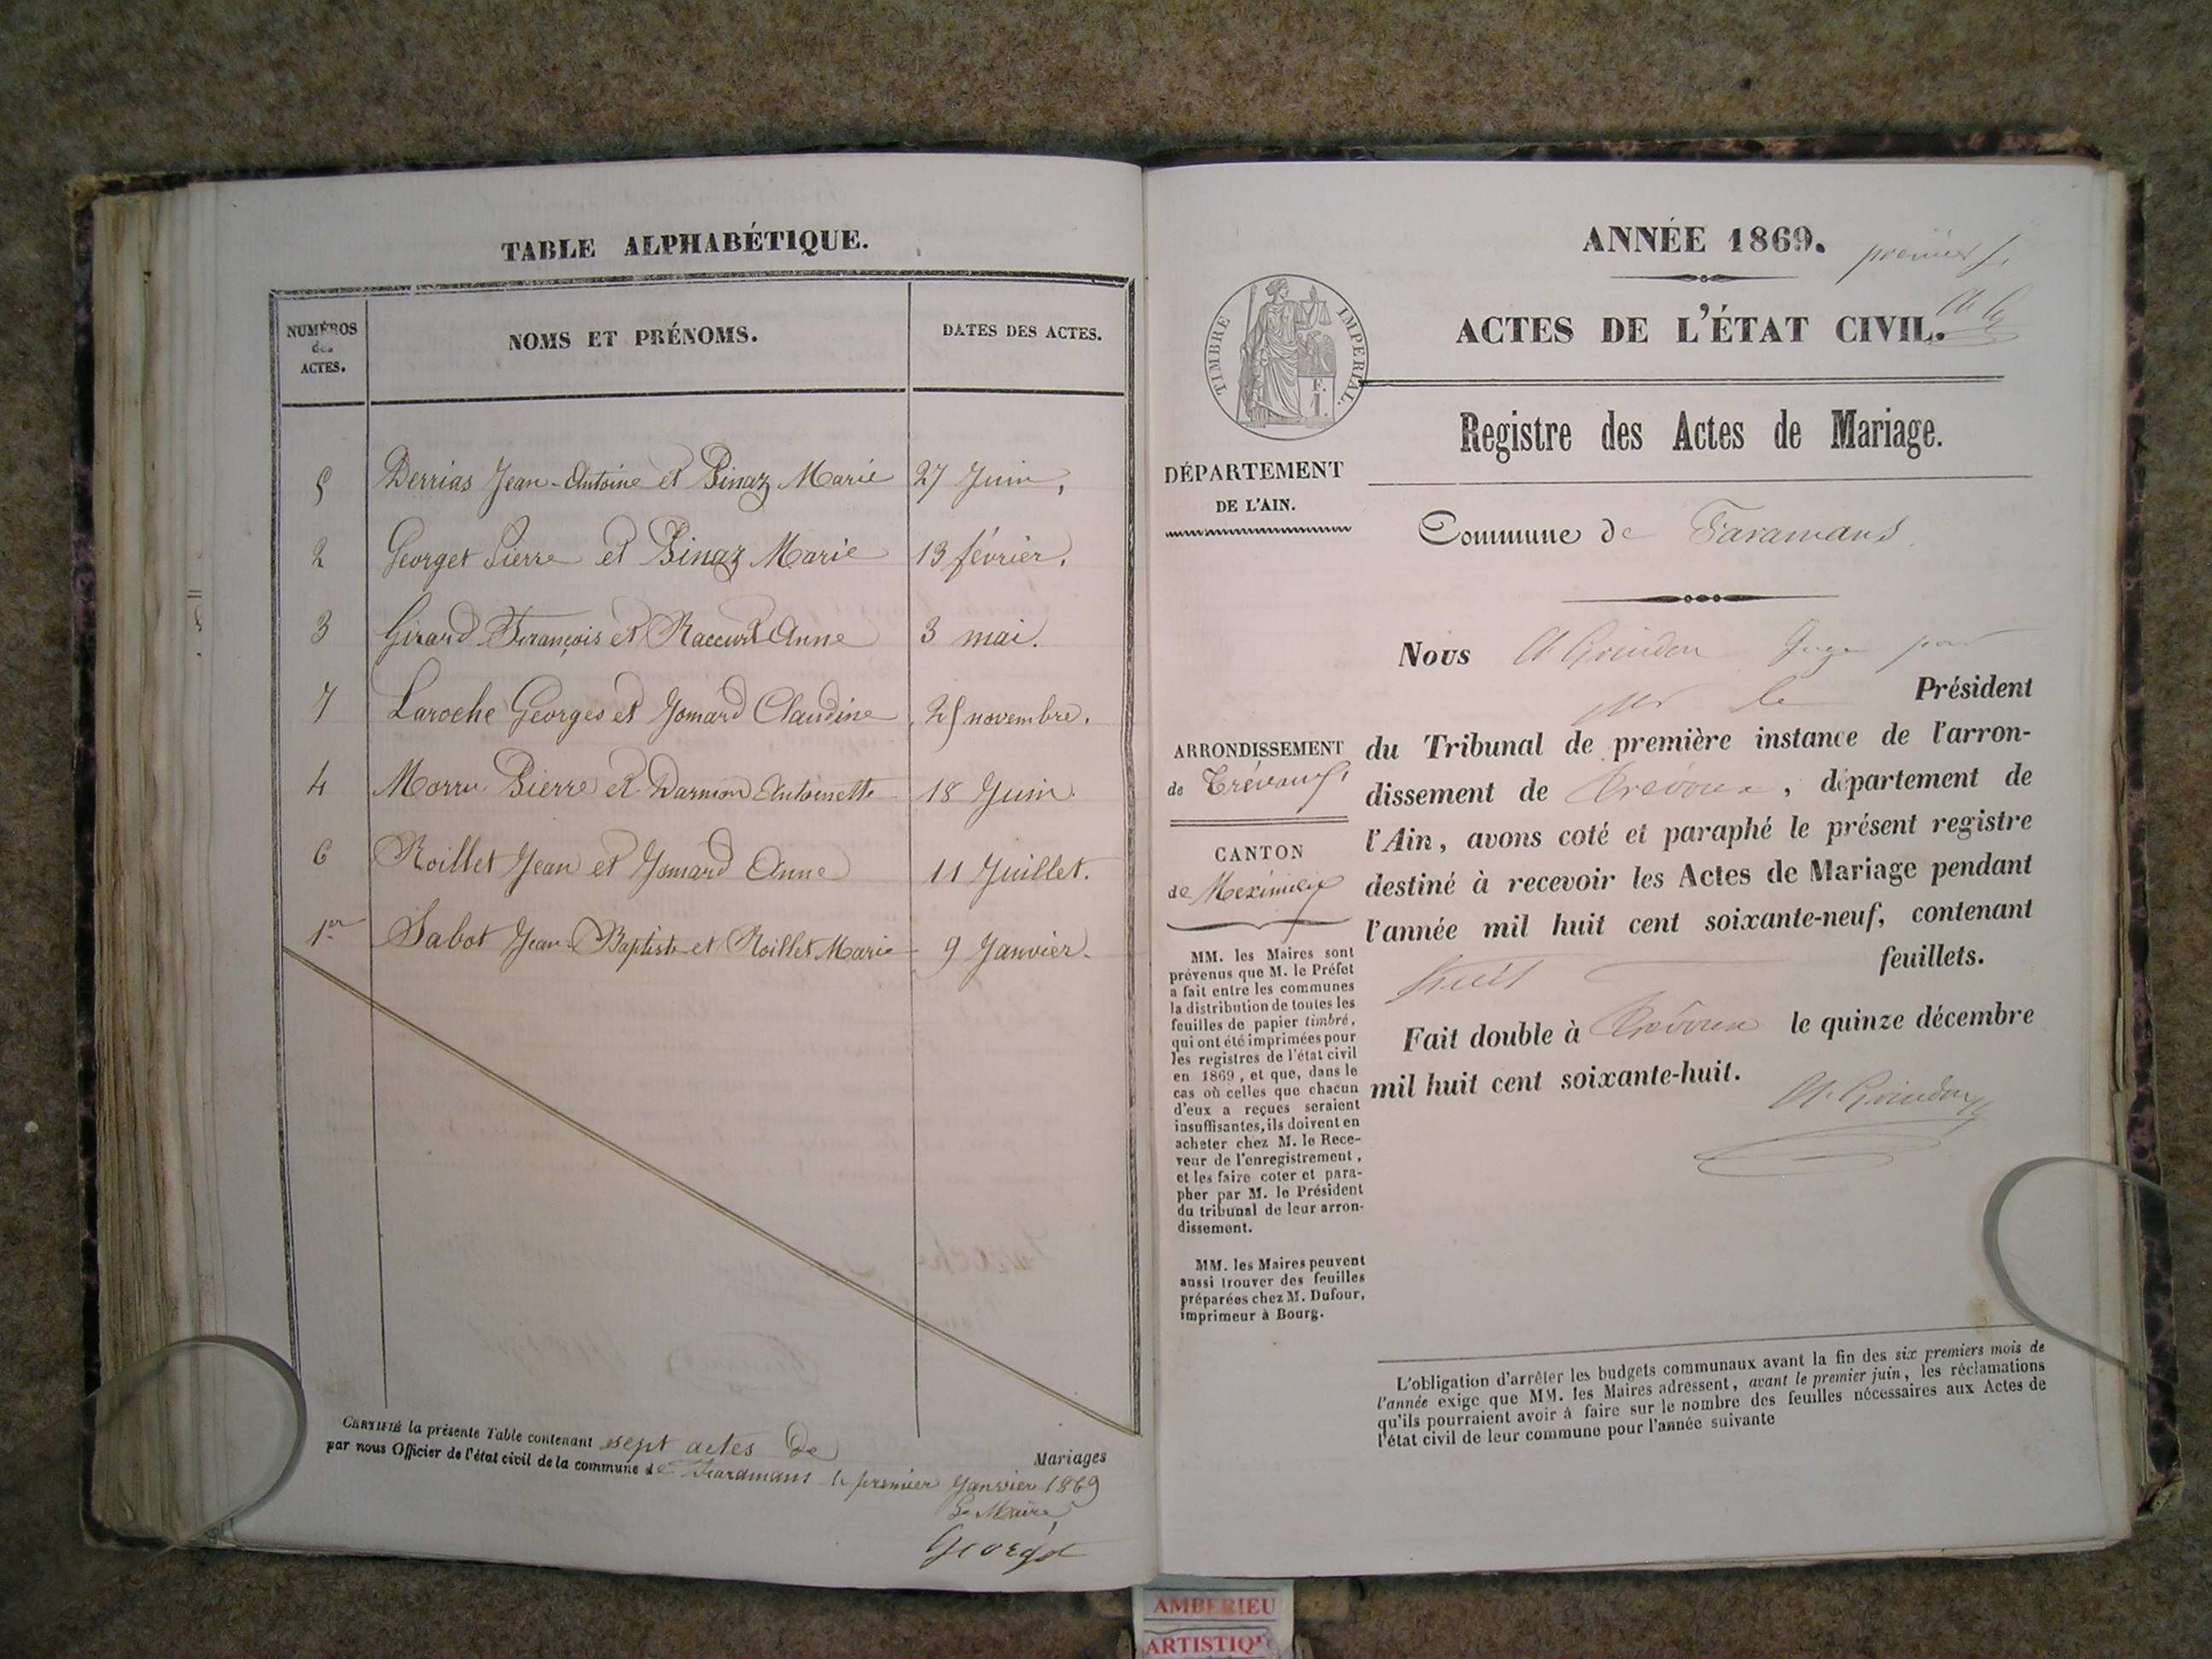 TABLE ALPHABÉTIQUE.
NUMÉROS
des
ACTES.
NOMS ET PRÉNOMS.
DATES DES ACTES.
5 Derrias Jean-Antoine et Pinaz Marie 27 Juin.
2 Georget Pierre et Pinaz Marie 13 février.
3 Girard François et Raccurt Anne 3 mai.
7 Laroche Georges et Jomard Claudine 25 novembre.
4 Morru Pierre et Darmon Antoinette 18 Juin
6 Roillet Jean et Jomard Anne 11 Juillet.
1er Sabot Jean-Baptiste et Roillet Marie 9 Janvier.
CERTIFIÉ la présente Table contenant sept actes de Mariages
par nous Officier de l'état civil de la commune de Faramans le premier Janvier 1869
Le Maire,
Georget
ANNÉE 1869.
premier f.
ACTES DE L'ÉTAT CIVIL.
TIMBRE IMPÉRIAL.
F.
I.
Registre des Actes de Mariage.
DÉPARTEMENT
DE L'AIN.
Commune de Faramans
ARRONDISSEMENT
de Trévoux
CANTON
de Meximieux
MM. les Maires sont
prévenus que M. le Préfet
a fait entre les communes
la distribution de toutes les
feuilles de papier timbré,
qui ont été imprimées pour
les registres de l'état civil
en 1869, et que, dans le
cas où celles que chacun
d'eux a reçues seraient
insuffisantes, ils doivent en
acheter chez M. le Rece-
veur de l'enregistrement,
et les faire coter et para-
pher par M. le Président
du tribunal de leur arron-
dissement.
MM. les Maires peuvent
aussi trouver des feuilles
préparées chez M. Dufour,
imprimeur à Bourg.
Nous A Grindon Juge pour
le Président
du Tribunal de première instance de l'arron-
dissement de Trévoux, département de
l'Ain, avons coté et paraphé le présent registre
destiné à recevoir les Actes de Mariage pendant
l'année mil huit cent soixante-neuf, contenant
huit feuillets.
Fait double à Trévoux le quinze décembre
mil huit cent soixante-huit.
A. Grindon
L'obligation d'arrêter les budgets communaux avant la fin des six premiers mois de
l'année exige que MM. les Maires adressent, avant le premier juin, les réclamations
qu'ils pourraient avoir à faire sur le nombre des feuilles nécessaires aux Actes de
l'état civil de leur commune pour l'année suivante
AMBERIEU
ARTISTIQU